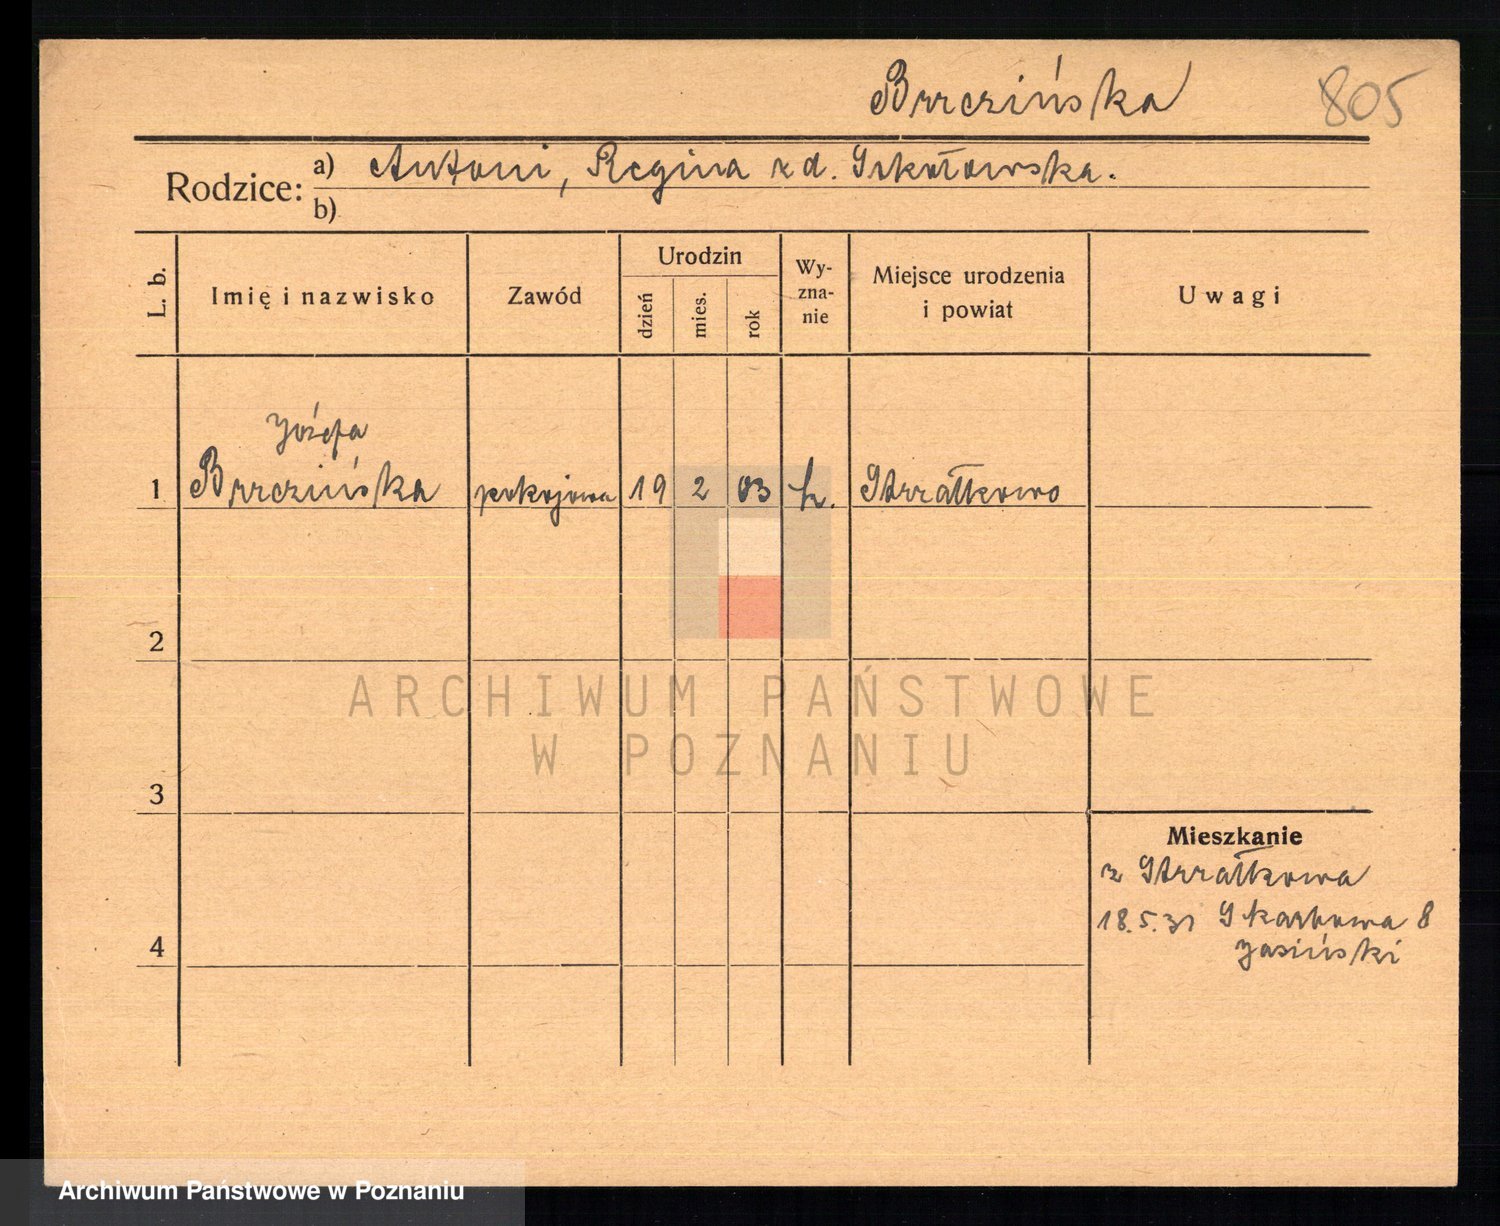 Brzezińska 805
Rodzice: a) Antoni, Regina z d. Szkołowska.
b)
L. b. Imię i nazwisko Zawód Urodzin dzień mies. rok Wy-zna-nie Miejsce urodzenia i powiat Uwagi
Józefa
1 Brzezińska pokojowa 19 2 03 k. Strzałkowo
2
ARCHIWUM PAŃSTWOWE
W POZNANIU
3
Mieszkanie
z Strzałkowa
18.5.31 Skarbowa 8
4 Jasiński
Archiwum Państwowe w Poznaniu